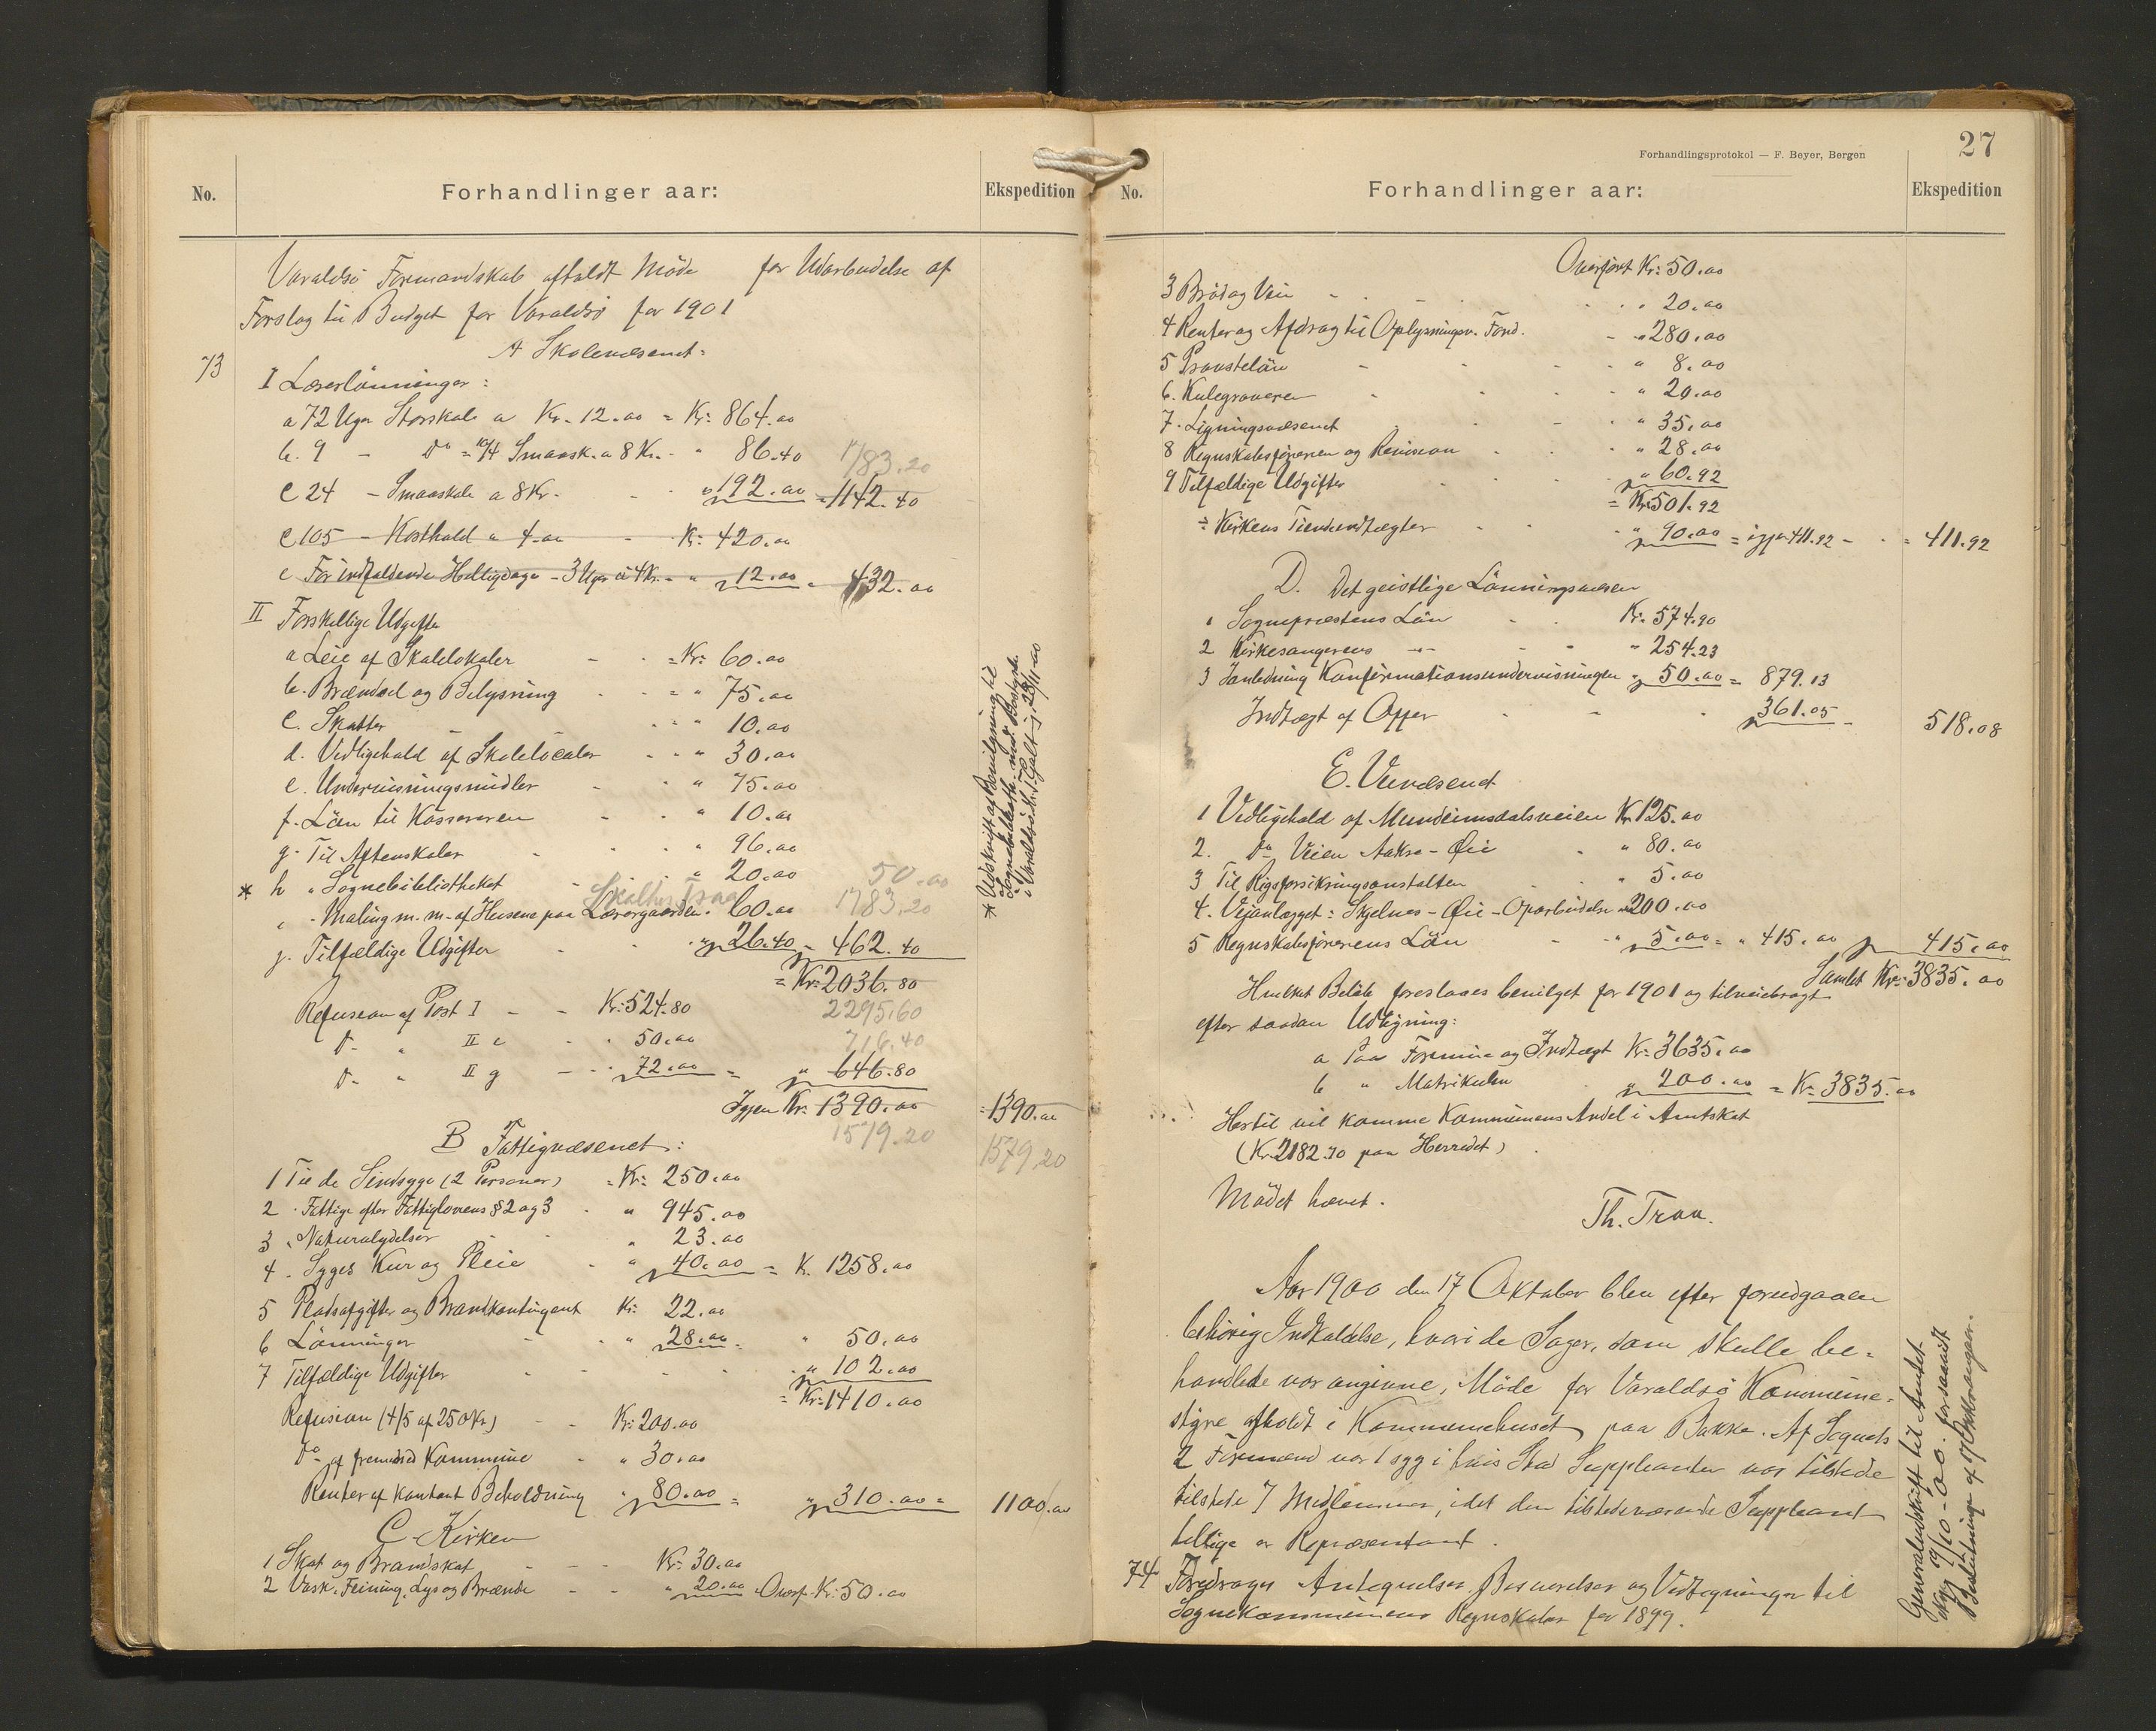 No.
Forhandlinger aar:
Ekspedition
Varaldsø Formandskab afholdt Møde for Udarbeidelse af
Forslag til Budget for Varaldsø for 1901
A Skolevæsenet:
73
I Lærerlønninger:
a 72 Uger Storskole a Kr. 12.00 = Kr: 864.00
b. 9 - Do = Smaask. a 8 Kr. - " 86.40 1783.20
c 24 - Smaaskole a 8 Kr. - - " 192.00 = 1142.40
c 105 - Kosthold a 4.00 - Kr: 420.00
e For indfaldende Helligdage - 3 Uger a 4 Kr. = " 12.00 = 432.00
II Forskellige Udgifter
a Leie af Skolelokaler - - = Kr: 60.00
b. Brændsel og Belysning - - = " 75.00
c. Skatter - - " 10.00
d. Vedligehold af Skolelocaler - - " 30.00
e. Undervisningsmidler - - " 75.00
f. Løn til Kassereren - - " 10.00
g. Til Aftenskoler - - " 96.00
* h " Sognebibliotheket - - " 20.00 50.00
i - Maling m. m. af Husene paa Lærergaarden. 60.00 1783.20
j. Tilfældige Udgifter - - " 26.40 = 462.40
= Kr: 2036.80
Refusion af Post I - - Kr: 524.80 2295.60
Do " II e - - " 50.00 716.40
Do " II g - - " 72.00 = " 646.80
Igjen Kr: 1390.00 = 1390.00
1579.20 1579.20
B Fattigvæsenet:
1 Til de Sindsyge (2 Personer) = Kr: 250.00
2 . Fattige efter Fattiglovens § 2 og 3 - " 945.00
3 . Naturalydelser - - " 23.00
4 . Syges Kur og Pleie - " 40.00 = K. 1258.00
5 Pladsafgifter og Brandkontingent Kr: 22.00
6 Lønninger - - " 28.00 = " 50.00
7 Tilfældige Udgifter - - - " 102.00
= Kr: 1410.00
Refusion (4/5 af 250 Kr) - - Kr: 200.00
Do af fremmed Kommune - " 30.00
Renter af kontant Beholdning " 80.00 = " 310.00 = 1100.00
C Kirken
1 Skat og Brandskat - - - Kr: 30.00
2 Vask. Feining. Lys og Brænde - - " 20.00 Overf. Kr: 50.00
* Udskrift ag Bevilgning til
Sognebibliothe.
i Varaldsø 23/11-00
27
Forhandlingsprotokol — F. Beyer, Bergen
No.
Forhandlinger aar:
Ekspedition
Overført Kr: 50.00
3 Brød og Vin - - - " 20.00
4 Renter og Afdrag til Oplysningsv. Fond. - " 280.00
5 Provsteløn - - - " 8.00
6. Kulegraveren - - - " 20.00
7. Ligningsvæsenet - - " 35.00
8 Regnskabsføreren og Revision - - " 28.00
9 Tilfældige Udgifter - - " 60.92
= Kr: 501.92
÷ Kirkens Tiendeindtægter - - " 90.00 = igjen 411.92 - - = 411.92
D. Det geistlige Lønningsvæsen
1 Sognepræstens Løn - - Kr: 574.90
2 Kirkesangerens -"- - - " 254.23
3 I anledning Konfirmationsundervisningen " 50.00 = 879.13
Indtægt af Offer - - - 361.05 - 518.08
E. Veivæsenet
1 Vedligehold af Mundeimsdalsveien Kr. 125.00
2. Do Veien Aakre - Øie - " 80.00
3 Til Rigsforsikringsanstalten - " 5.00
4. Vejanlægget: Skjelnes - Øie - Oparbeidelse " 200.00
5 Regnskabsførerens Løn - - " 5.00 = " 415.00 415.00
Samlet Kr: 3835.00
Hvilket Beløb foreslaaes bevilget for 1901 og tilveiebragt
efter saadan Udligning:
a Paa Formue og Indtægt Kr: 3635.00
b " Matrikulen " 200.00 = Kr: 3835.00
Hertil vil komme Kommunens Andel i Amtskat
(Kr. 2182.70 paa Herredet)
Mødet hævet.
Th. Traa.
Aar 1900 den 17 Oktober blev efter foregaaen
behørig Indkaldelse, hvori de Sager, som skulle be-
handlede var angivne, Møde for Varaldsø Kommune-
styre afholdt i Kommunehuset paa Bakke. Af Sognets
2 Formænd var 1 syg i hvis Sted Suppleanten var tilstede
tilstede 7 Medlemmer, idet den tilstedeværende Suppleant
tillige er Repræsentant.
74 Foredrages Antegnelser Besvarelser og Vedtegninger til
Sognekommunens Regnskaber for 1899.
Generaludskrift til Amtet
19/10-00. forsaavidt
Beslutninger